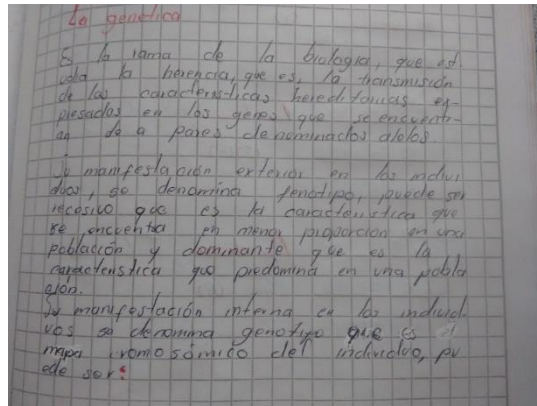 La genética
Es la rama de la biología, que est
udia la herencia, que es, la transmisión
de las características hereditarias ex-
presados en los genes que se encuentr-
an de a pares denominados alelos.
Su manifestación exterior en los indivi
duos, se denomina fenotipo, puede ser
recesivo que es la característica que
se encuentra en menor proporción en una
población y dominante que es la
característica que predomina en una pobla
ción.
Su manifestación interna en los individ-
uos se denomina genotipo que es el
mapa cromosómico del individuo, pu
ede ser: